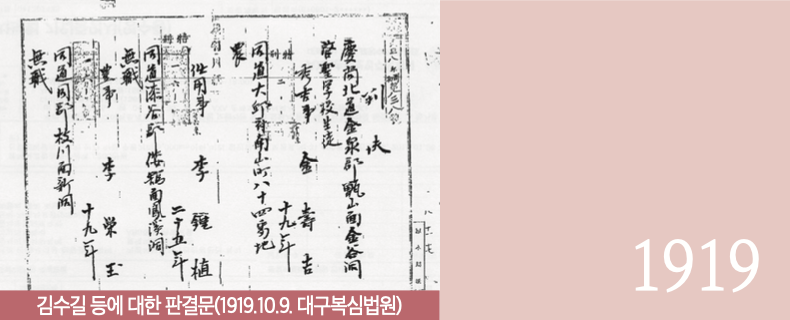 判決
慶尚北道金泉郡甑山面金谷洞
啓聖学校生徒
金壽吉
十九年
同道大邱府南山町八十四番地
農
李鍾植
二十五年
同道漆谷郡倭館面鳳溪洞
無職
李榮玉
十九年
同道同郡枝川面新洞
無職
김수길 등에 대한 판결문(1919.10.9. 대구복심법원)
1919